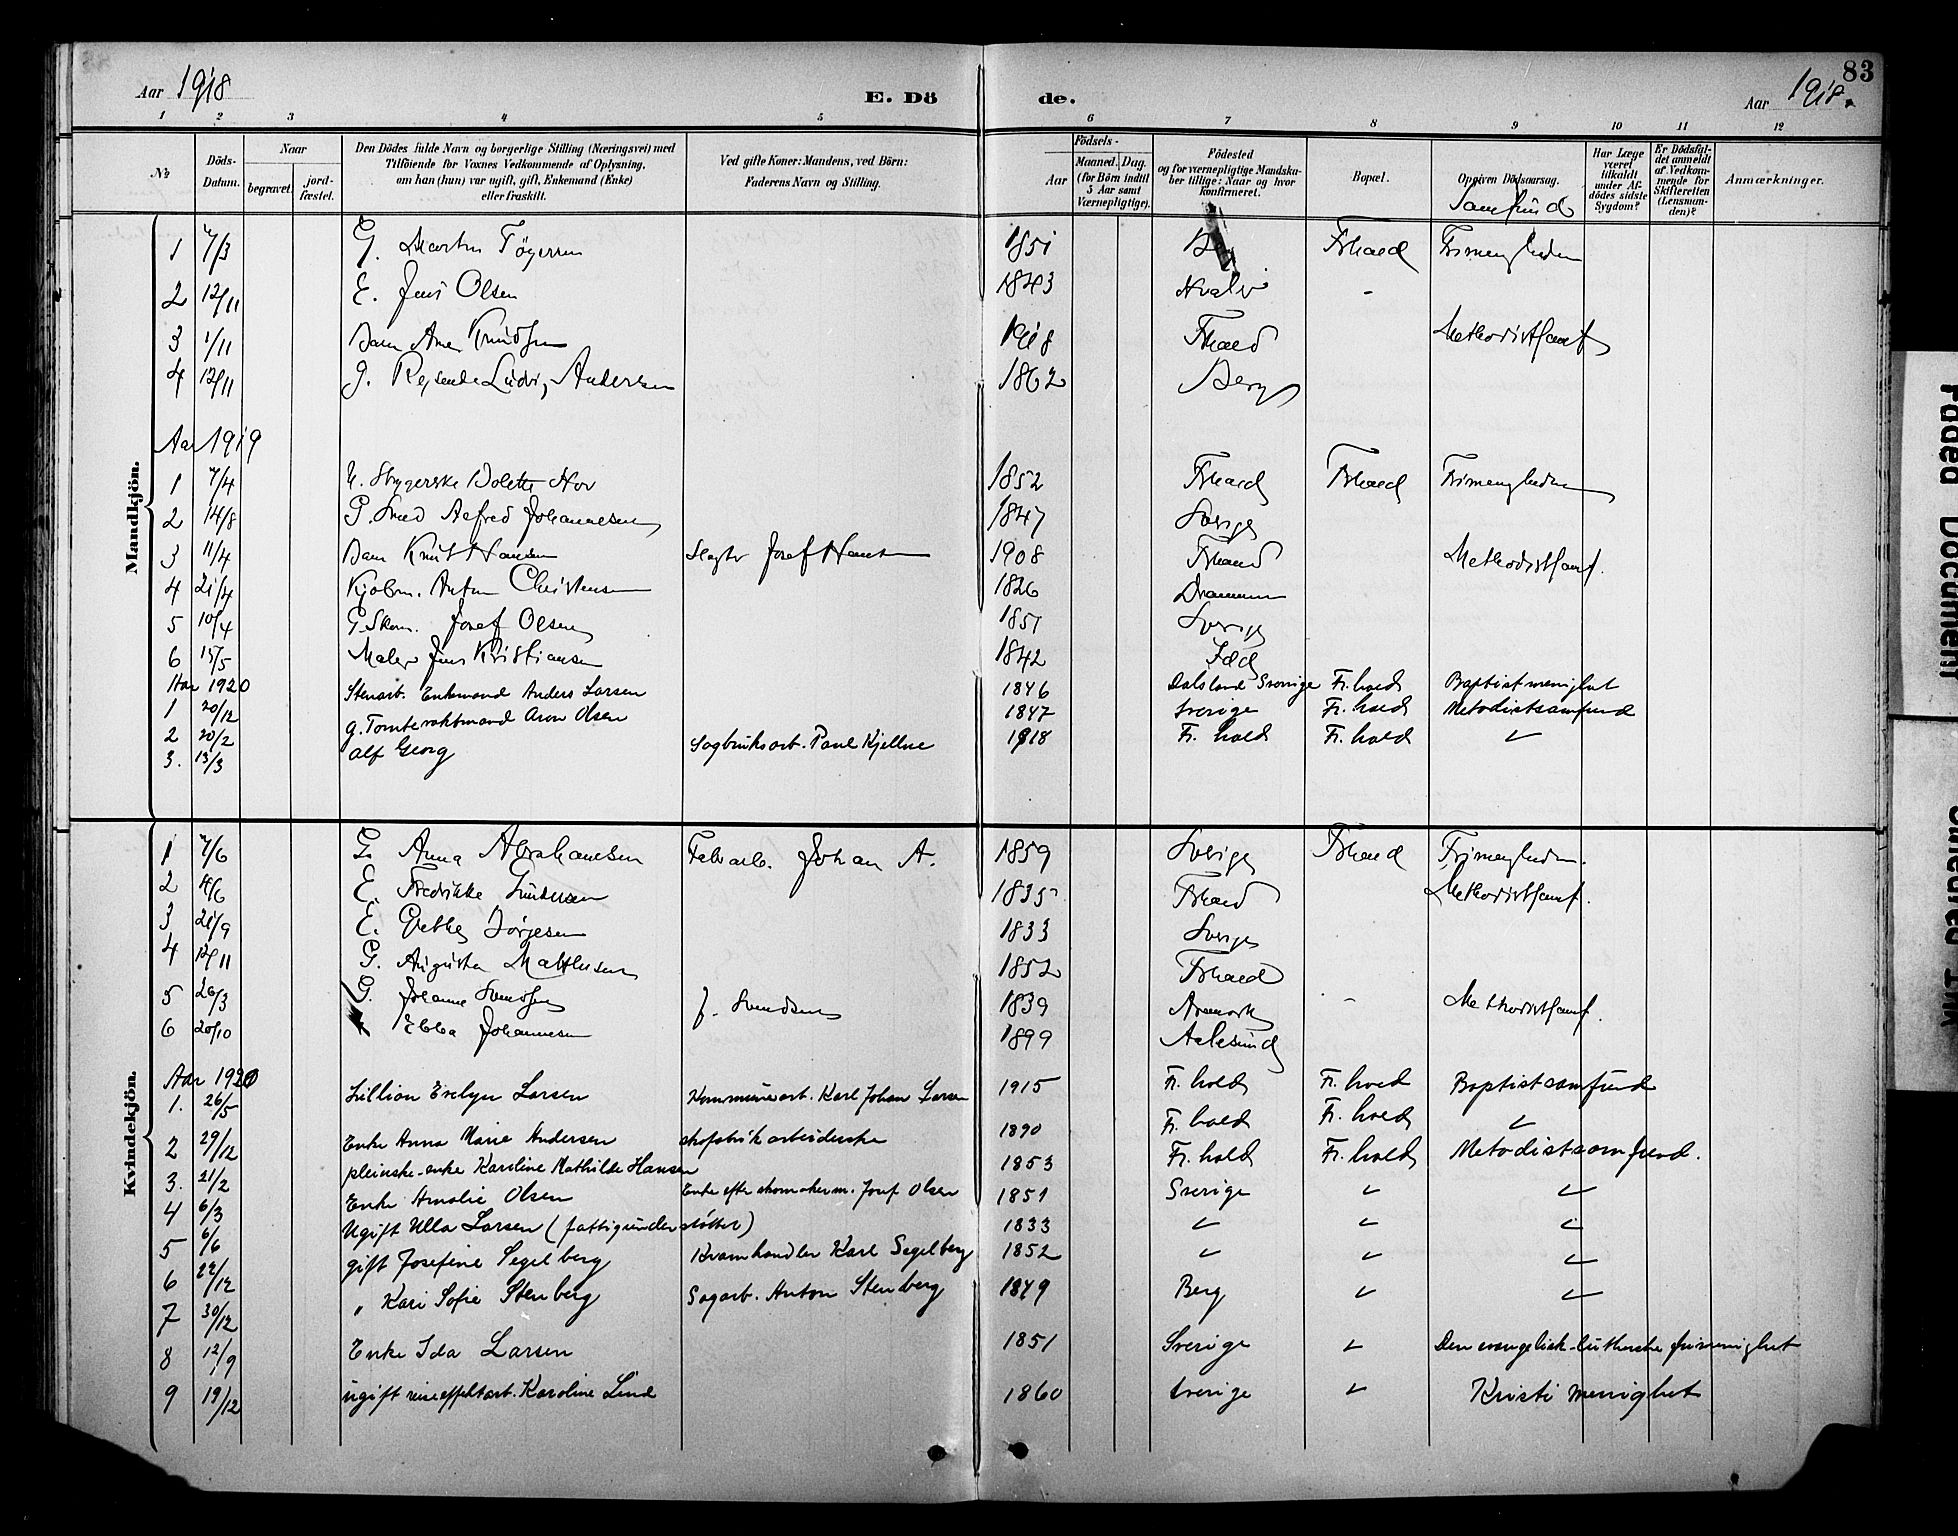 83
Aar 1918 E. Dö de. Aar 1918.
1 2 3 4 5 6 7 8 9 10 11 12
No Döds-Datum. Naar begravet. jord-fæstet. Den Dödes fulde Navn og borgerlige Stilling (Næringsvei) med Tilföiende for Voxnes Vedkommende af Oplysning, om han (hun) var ugift, gift, Enkemand (Enke) eller fraskilt. Ved gifte Koner: Mandens, ved Börn: Faderens Navn og Stilling. Födsels- Aar Maaned. Dag. (for Börn indtil 5 Aar samt Værnepligtige). Födested og for værnepligtige Mandska-ber tillige: Naar og hvor konfirmeret. Bopæl. Opgiven Dödsaarsag. Samfund Har Læge været tilkaldt under Af-dödes sidste Sygdom? Er Dödsfal-det anmeldt af Vedkom-mende for Skifteretten (Lensman-den)? Anmærkninger.
Mandkjön.
1 7/3 G. Martin 1851 Fr.hald Frimenigheden
2 12/11 E. Jens Olsen 1843 Hvaler -
3 1/11 Barn Arne Knudsen 1918 Fr.hald Methodistsamf
4 12/11 g. Rejsende Ludvig Andersen 1862 Berg
Aar 1919
1 7/4 Bolette 1852 Fr.hald Fr.hald Frimenigheden
2 14/8 G. Smed Alfred Johannesen 1847 Sverige
3 11/4 Barn Knut Hansen Josef Hansen 1908 Fr.hald Methodistsamf.
4 21/4 Kjøbm. Anton Christensen 1826 Drammen
5 10/4 G. Skom. Josef Olsen 1851 Sverige
6 15/5 Maler Jens Kristiansen 1842 Idd
Aar 1920
1 20/12 Stenarb. Enkemand Anders Larsen 1846 Dalsland Sverige Fr.hald Baptistmenighet
2 20/2 g. Tomtevaktmand Aron Olsen 1847 Sverige Fr.hald Metodistsamfund
3. 13/3 Alf Georg Sagbruksarb. Paul Kjellne 1918 Fr. hald Fr. hald ✓
Kvindekjön.
1 7/6 G. Anna Abrahamsen Fabrarb. Johan A. 1859 Sverige Fr.hald Frimenigheden.
2 4/6 E. Fredrikke 1835 Fr.hald Methodistsamf.
3 21/9 E. Grethe 1833 Sverige
4 12/11 G. Augusta Mathisen 1852 Fr.hald
5 26/3 G. Johanne Svendsen J. Svendsen 1839 Aremark - Methodistsamf.
6 20/10 Ebba Johannesen 1899 Aalesund
Aar 1920
1. 26/5 Lillian Evelyn Larsen Kommunearb. Karl Johan Larsen 1915 Fr. hald Fr. hald Baptistsamfund
2 29/12 Enke Anna Marie Andersen skofabrikarbeiderske 1890 Fr. hald Fr. hald ✓
3. 21/2 pleierske-enke Karoline Mathilde Hansen 1853 Fr. hald Fr. hald Metodistsamfund.
4 6/3 Enke Amalie Olsen Enke efter skomakerm. Josef Olsen 1851 Sverige ✓ ✓
5 6/6 Ugift Ulla Larsen (fattigunderstøttet) 1833 ✓ ✓ ✓
6 22/12 gift Josefine Segelberg Kramhandler Karl Segelberg 1852 ✓ ✓ ✓
7 30/12 " Kari Sofie Stenberg Sagarb. Anton Stenberg 1849 Berg ✓ ✓
8 12/9 Enke Ida Larsen 1851 Sverige ✓ Den evangelisk-lutherske frimenighet
9 19/12 ugift reiseeffektarb. Karoline Lind 1860 Sverige ✓ Kristi menighet
Faded Document
Smeared Ink